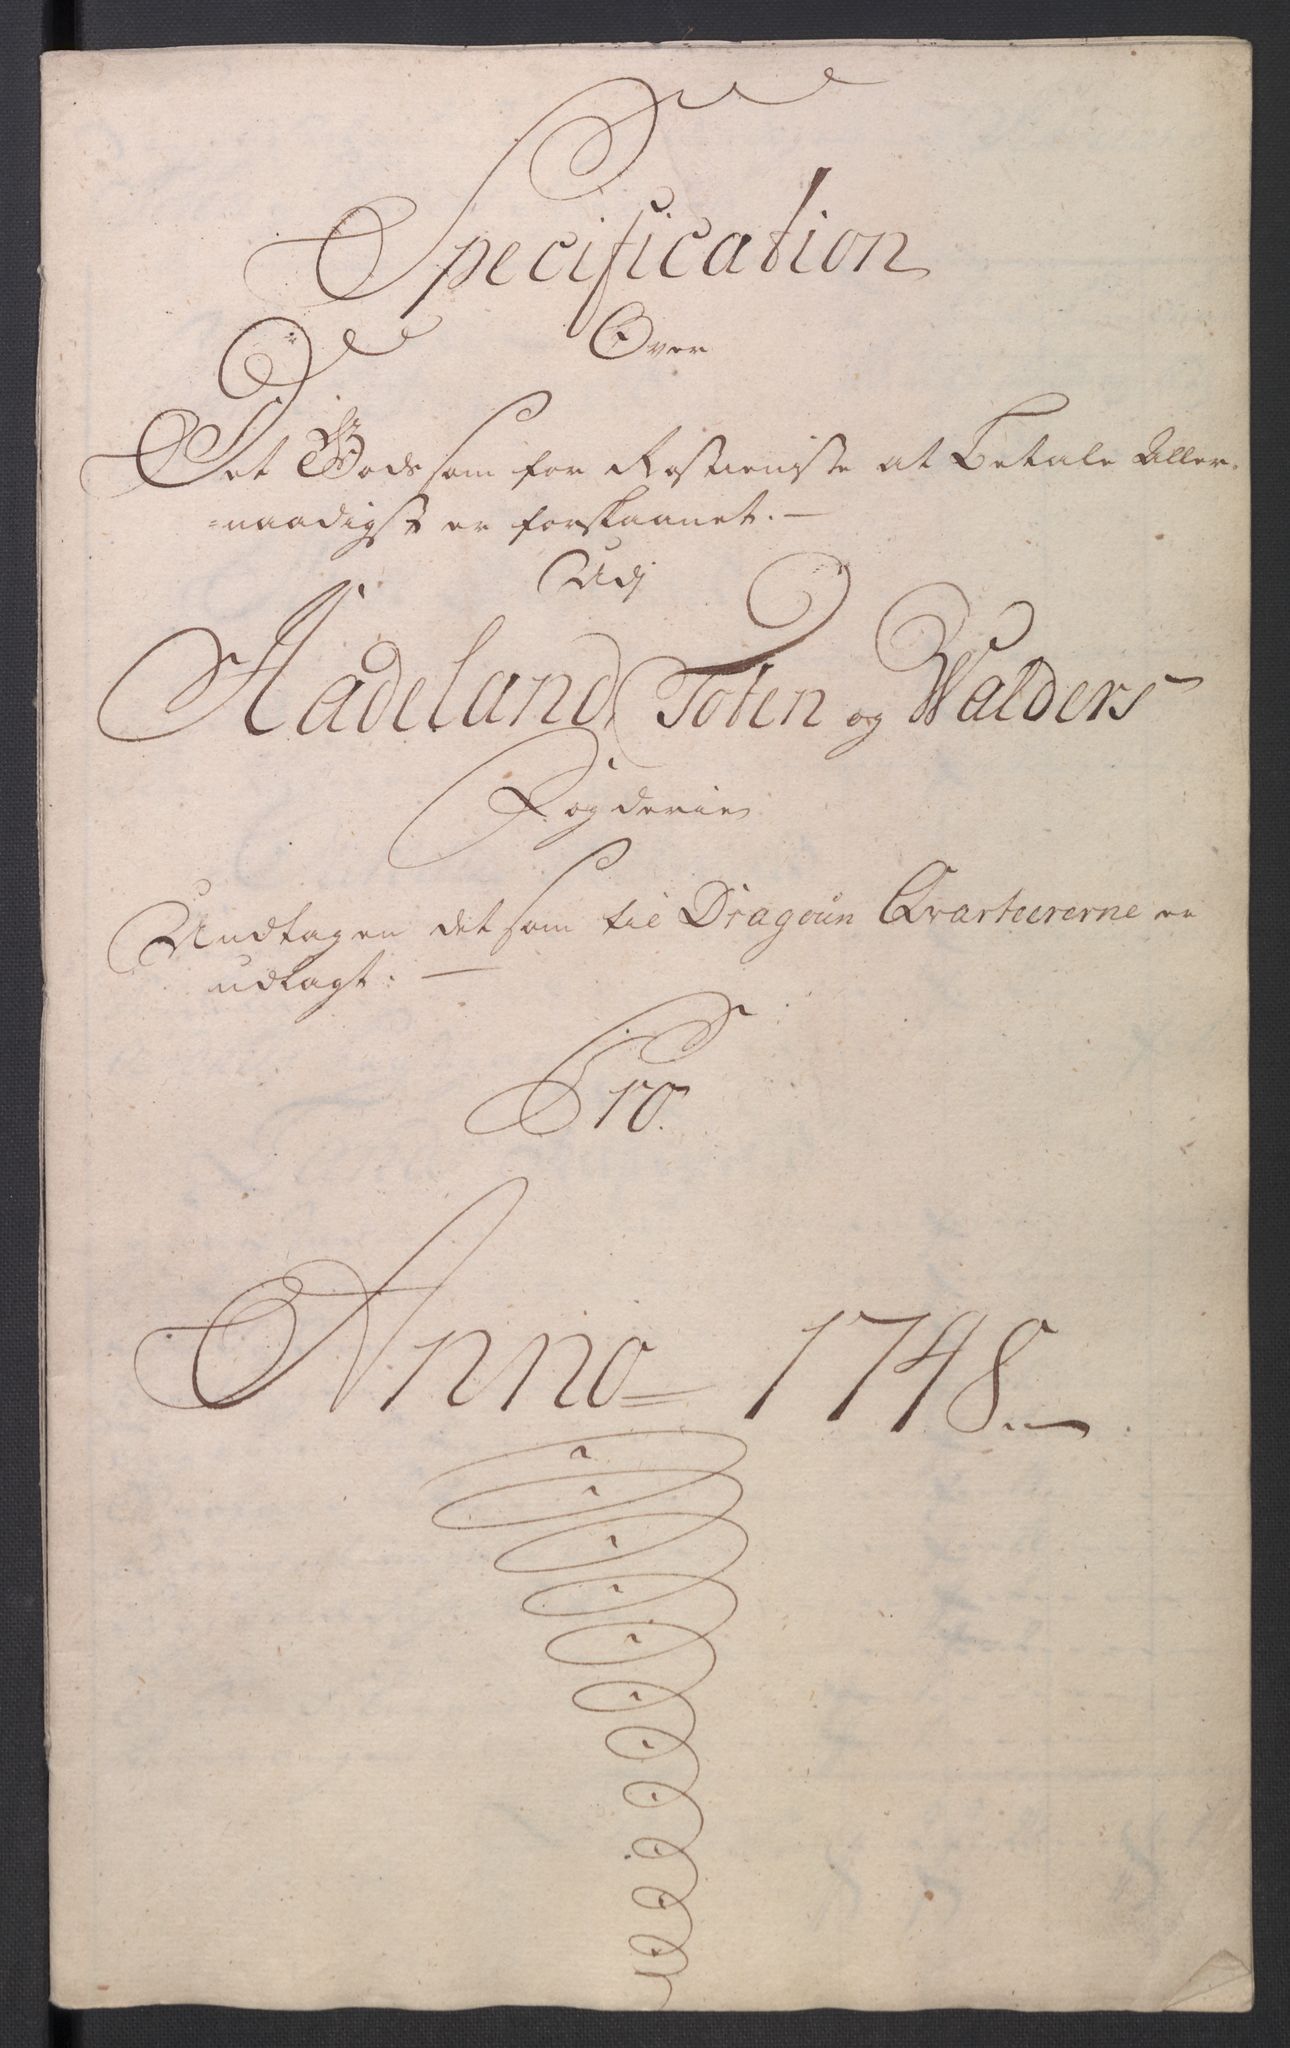 Specification
Over
Det Gods som for Rostieniste at Betale Aller-
=naadigst er forskaanet. —
Udj
Hadeland, Toten og Walders
Fogderie
Undtagen det som til Dragoun Qvarteererne er
udlagt: —
Pro
Anno= 1748. —